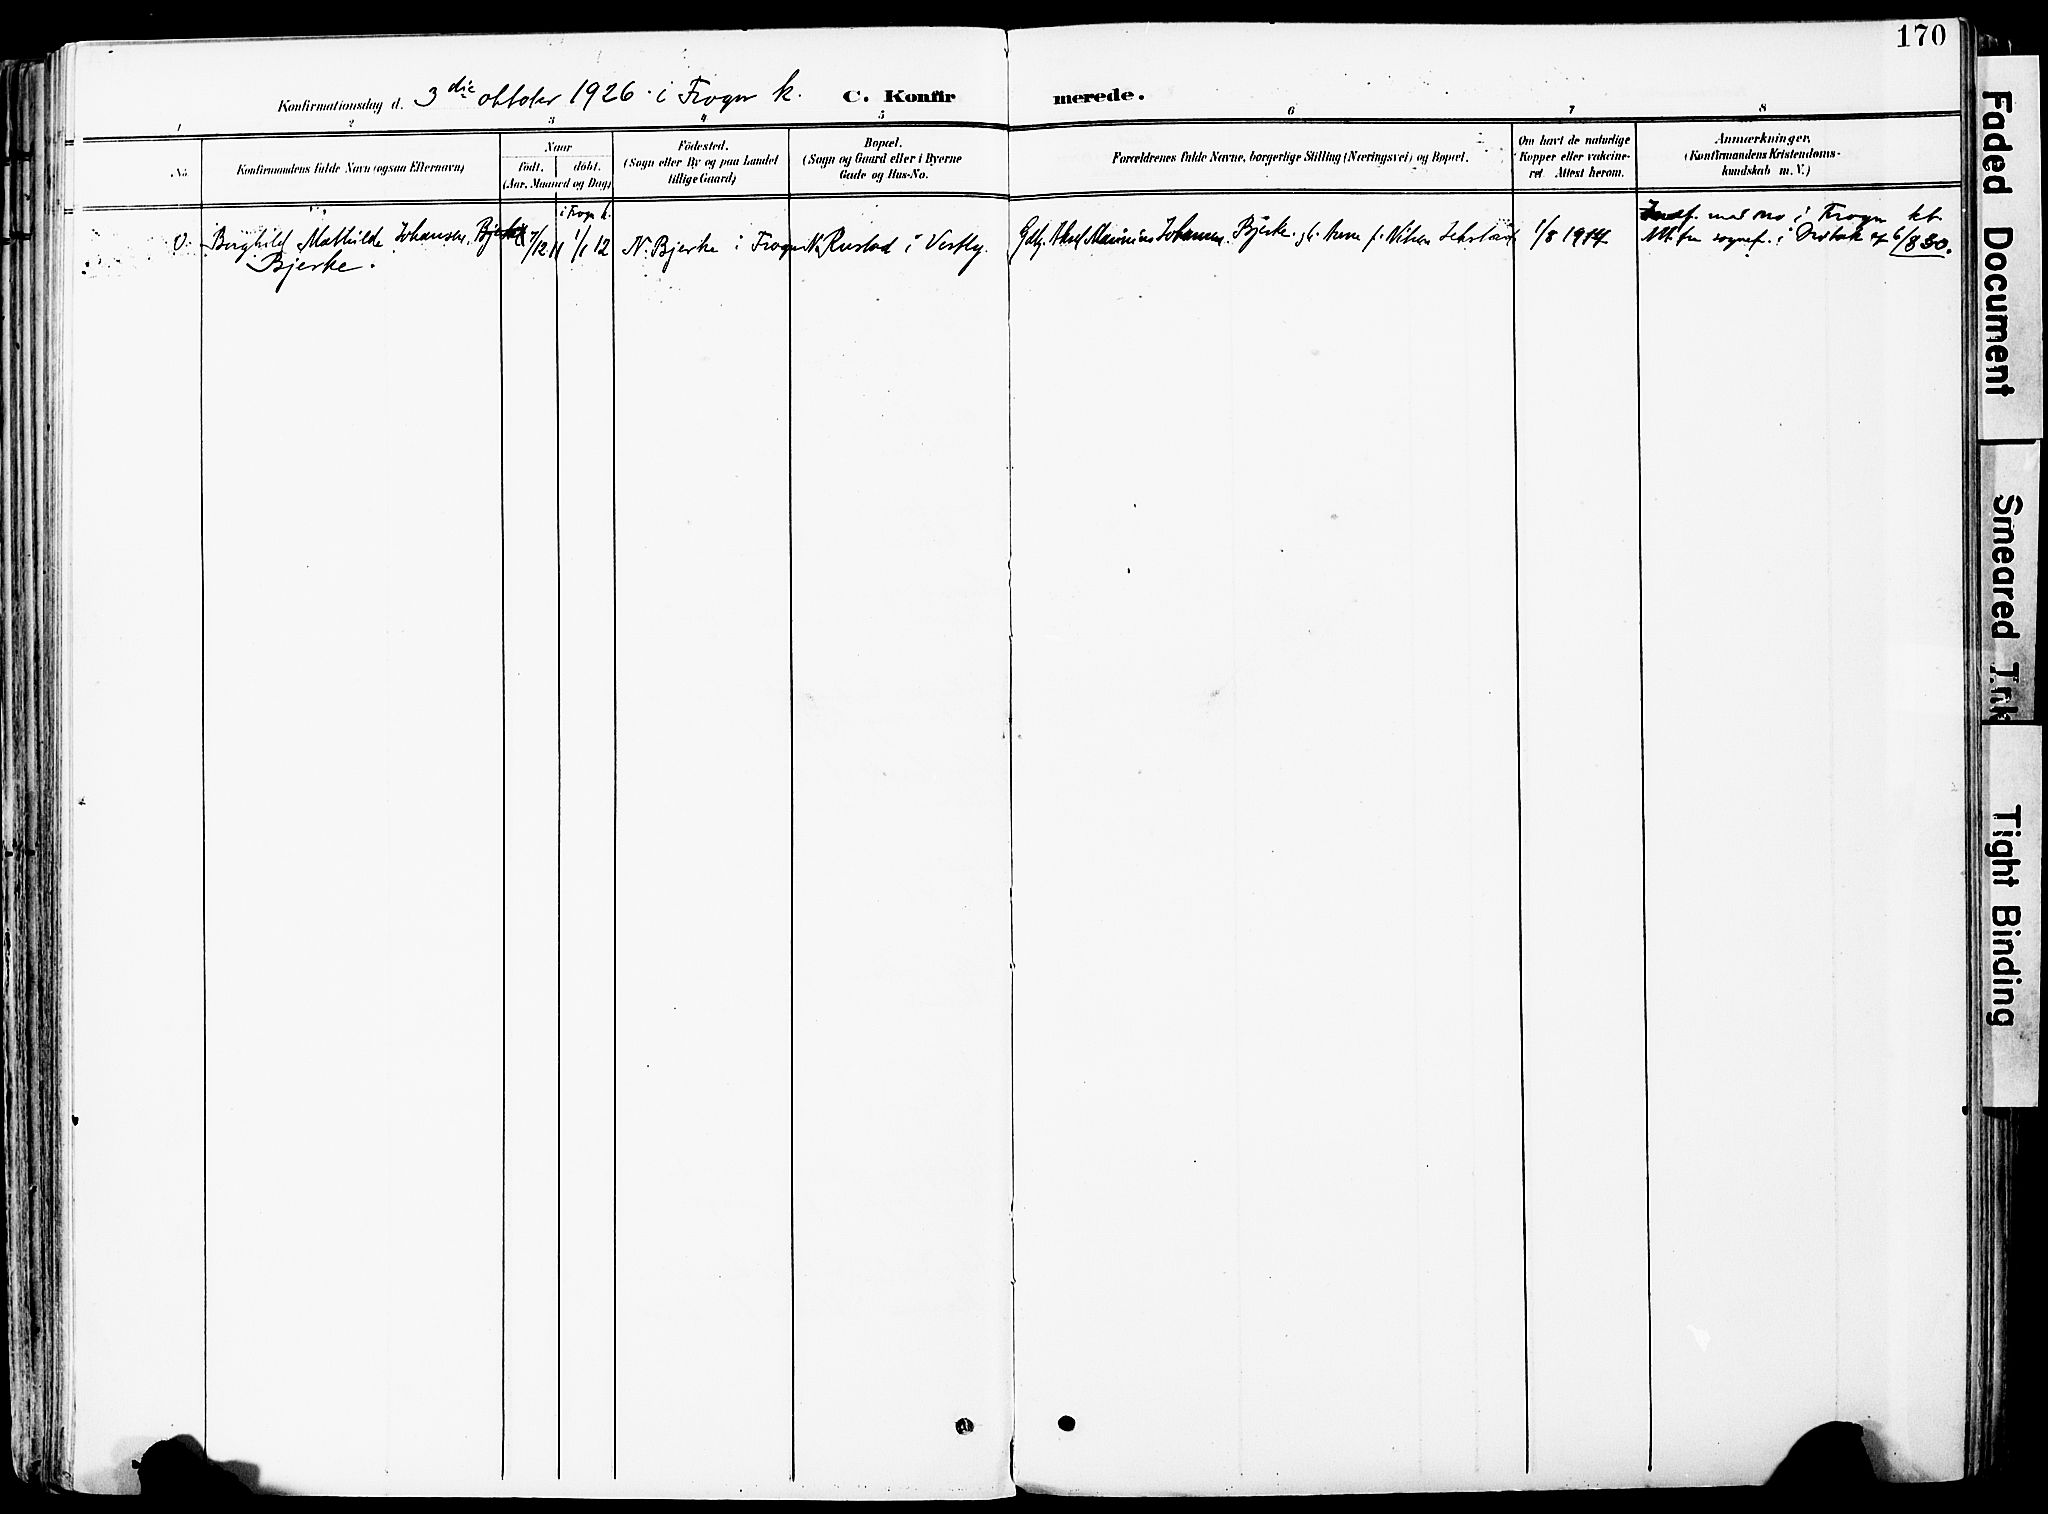 170
Konfirmationsdag d. 3 die oktober 1926 i Frogn k. C. Konfirmerede.
1 2 3 4 5 6 7 8
No. Konfirmandens fulde Navn (ogsaa Efternavn)
Naar
født. døbt.
(Aar, Maaned og Dag)
Fødested.
(Sogn eller By og paa Landet
tillige Gaard)
Bopæl.
(Sogn og Gaard eller i Byerne
Gade og Hus-No.
Forældrenes fulde Navne, borgerlige Stilling (Næringsvei) og Bopæl.
Om havt de naturlige
Kopper eller vakcine-
ret. Attest herom.
Anmærkninger.
(Konfirmandens Kristendoms-
kundskab m. V.)
i Frogn k.
0. Borghild Mathilde Johansen, Bjerke 7/12 11 1/1 12 N. Bjerke i Frogn N. Rustad i Vestby. Johannes Bjerke 1/8 1914
Bjerke.
Indf. med no i Frogn kb.
fra sognef. i 6/8 30.
Faded Document
Smeared Ink
Tight Binding